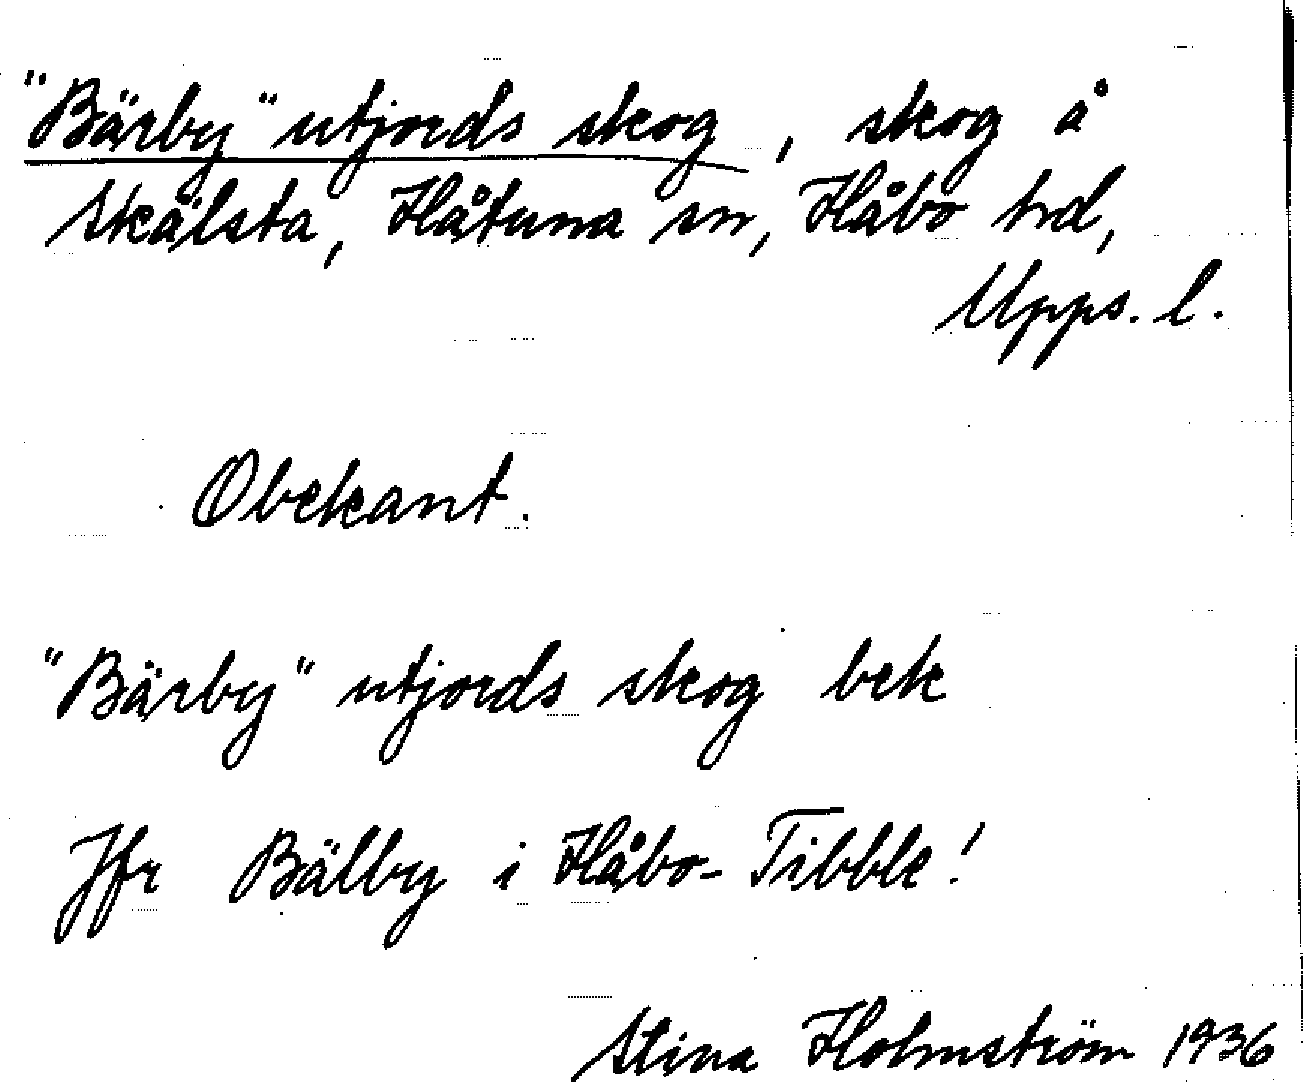 "Bärby" utjords skog, skog å
Skälsta, Håtuna sn, Håbo hd,
Upps. l.
Obekant.
"Bärby" utjords skog bek
Jfr Bälby i Håbo-Tibble!
Stina Holmström 1936